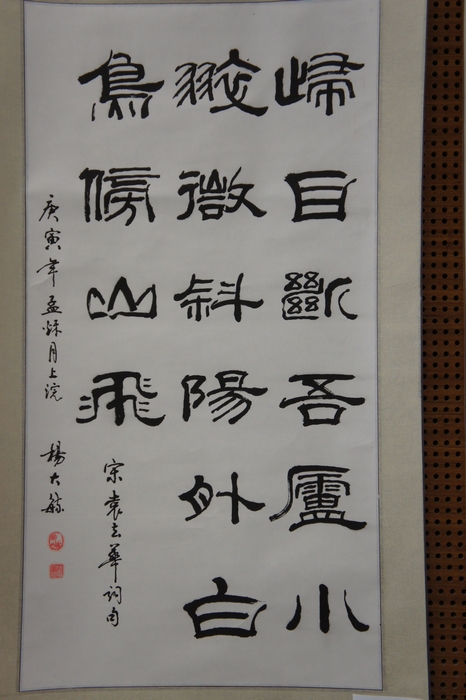 歸目斷吾廬小
翠微斜陽外白
鳥傍山飛
宋袁去華詞句
庚寅年孟秌月上浣
楊大